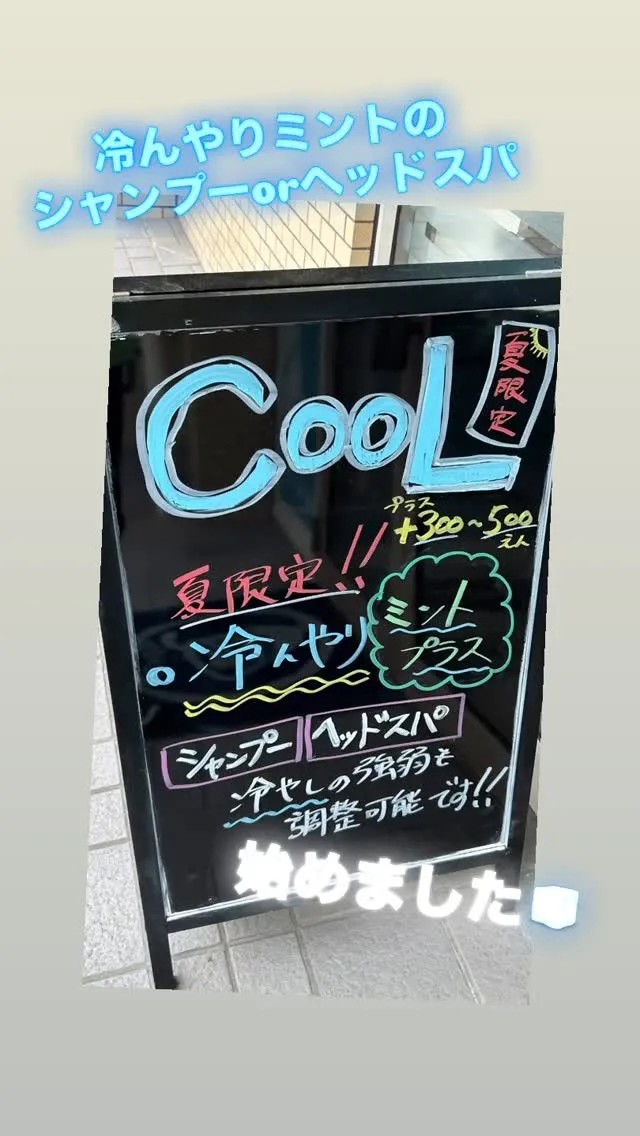 冷んやりミントの
シャンプーorヘッドスパ
COOL
夏限定
プラス
+300~500
えん
夏限定!!
冷んやり
ミント
プラス
シャンプー ヘッドスパ
冷やしの強弱も
調整可能です!!
始めました